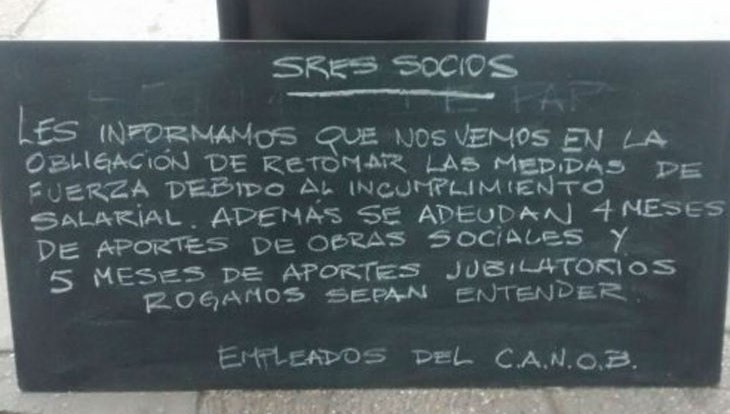 SRES SOCIOS
LES INFORMAMOS QUE NOS VEMOS EN LA
OBLIGACIÓN DE RETOMAR LAS MEDIDAS DE
FUERZA DEBIDO AL INCUMPLIMIENTO
SALARIAL. ADEMÁS SE ADEUDAN 4 MESES
DE APORTES DE OBRAS SOCIALES Y
5 MESES DE APORTES JUBILATORIOS
ROGAMOS SEPAN ENTENDER.
EMPLEADOS DEL C.A.N.O.B.